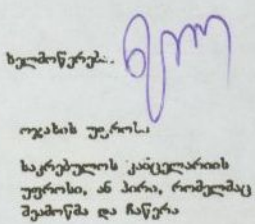 ხელმოწერები.
ოჯახის უფროსი
საკრებულოს კანცელარიის
უფროსი, ან პირი, რომელმაც
შეამოწმა და ჩაწერა